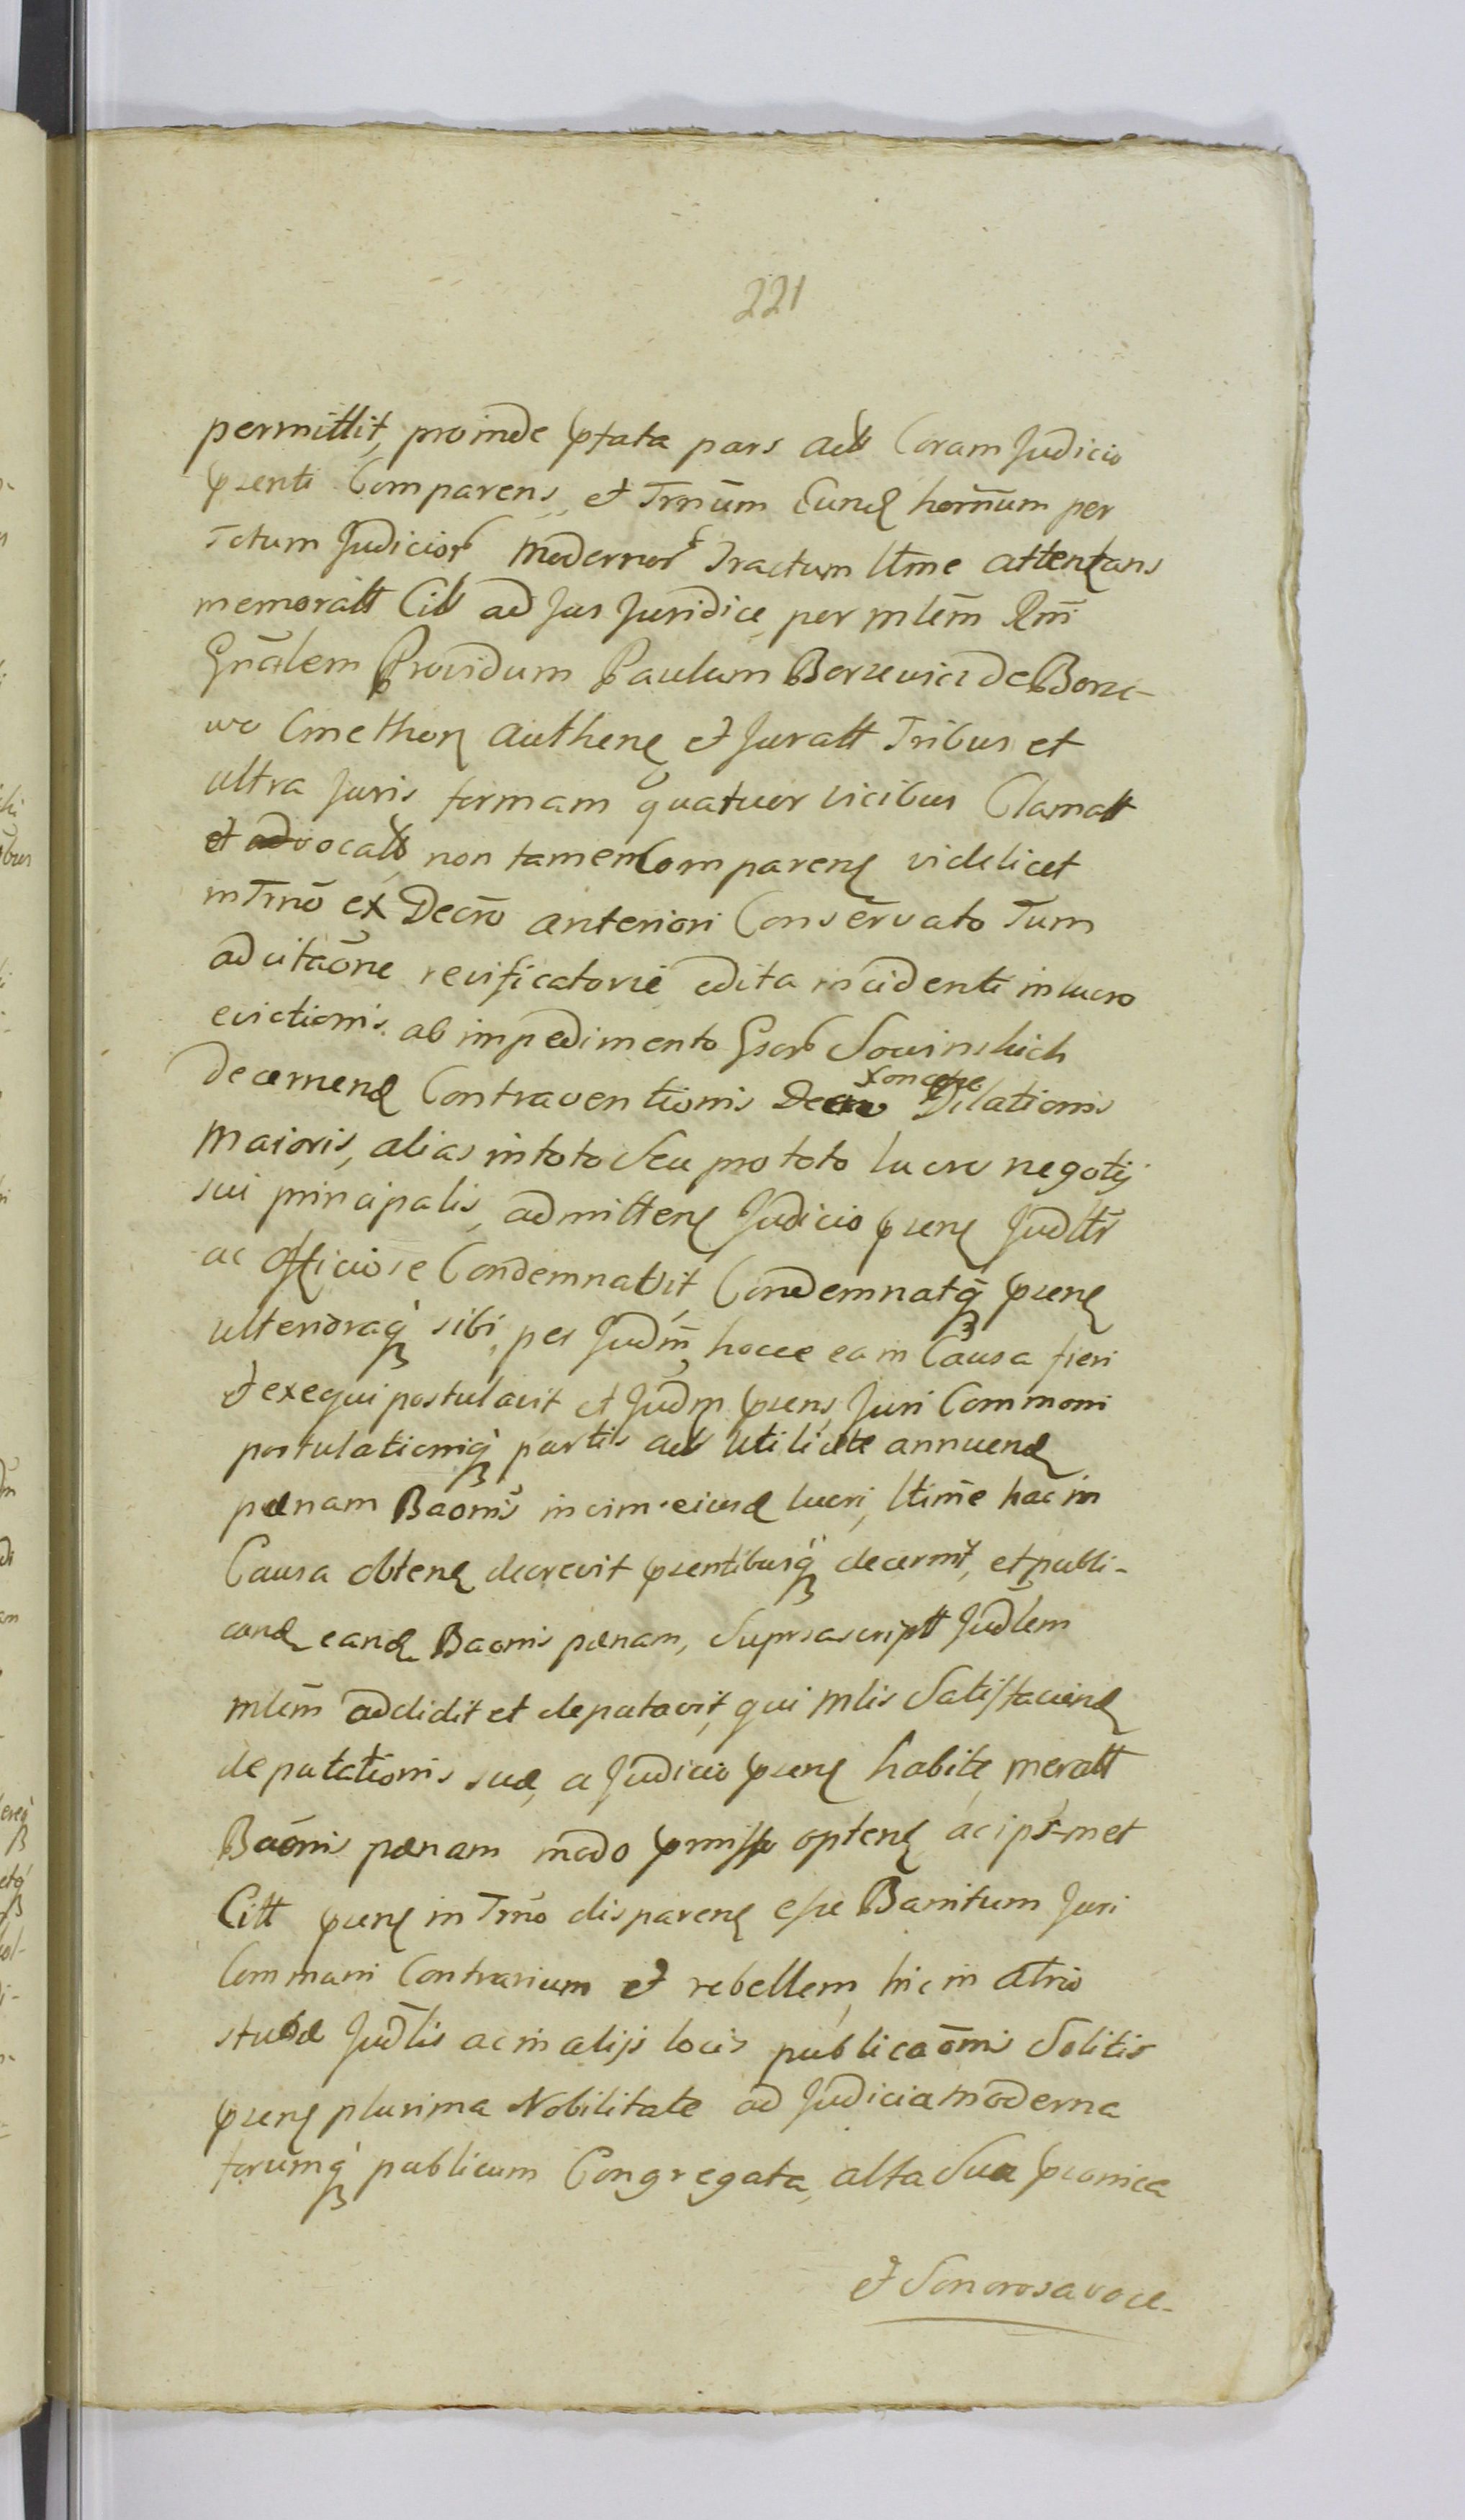 221
permittit, proinde pfata pars act Coram Judicio
psenti Comparens, et Trnūm Eund hornum per
Totum Judicior modernor Tractum ltme attentans
memoratt Citt ad Jus Juridice, per mlem Rni
Gnālem Providum Paulum Borzewicz de Borze-
wo Cmethon Authen et Juratt Tribus et
ultra Juris formam quatuor vicibus Clamatt
et advocatt non tamen Comparen videlicet
in Trno ex Decro anteriori Conservato Tum
ad citaōne reificatorie edita incidenti in lucro
evictionis ab impedimento Gsor Sowinskich
decernend Contraventionis Dilationis
Maioris, alias in toto Seu pro toto lucro negotij
sui principalis, admitten Judicio psen Judltr
ac officiose Condemnavit, Condemnatq psen
ulterioraq sibi, per Judm, hocce ea in Causa fieri
et exequi postulavit et Judm psens, Juri Communi
postulationiq partis act Utilidte annuend
pœnam Baonis in vim eiusd lucri, ltime hac in
Causa obten decrevit psentibusq decernit, et publi-
cand eand Baonis pœnam, Suprascriptt Judlem
mlem addidit et deputavit, qui mlis Satisfaciend
deputationis suæ, a Judicio psen habitæ, meratt
Baonis pœnam modo pmisso opten ac ipsmet
Citt psen in Trno disparen esse Banitum Juri
Communi Contrarium et rebellem, hic in Atrio
stubæ Judlis ac in alijs locis publicaōnis Solitis
psen plurima Nobilitate ad Judicia moderna
forumq publicum Congregata, alta Sua pconica
et Sonorosa voce-